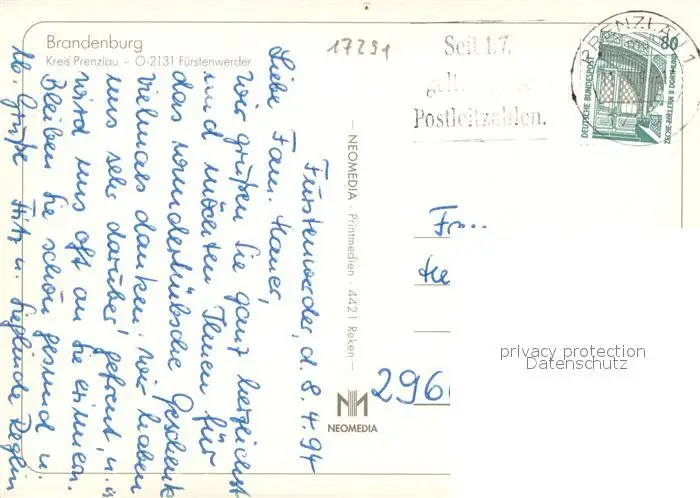 Brandenburg
Kreis Prenzlau – O-2131 Fürstenwerder
17291
Seit 1.7.
Postleitzahlen.
PRENZLAU 1
80
DEUTSCHE BUNDESPOST
ZECHE ZOLLERN II DORTMUND
Fürstenwerder, d. 8.4.94
Liebe Fam.
wir grüßen Sie ganz herzlichst
und möchten Ihnen für
das wunderhübsche Geschenk
vielmals danken. Wir haben
uns sehr darüber gefreut, u. es
wird uns oft an Sie erinnern.
Bleiben Sie schön gesund u.
lb. Grüße Fritz u. Sieglinde
– NEOMEDIA · Printmedien · 4421 Reken –
NEOMEDIA
296
privacy protection
Datenschutz